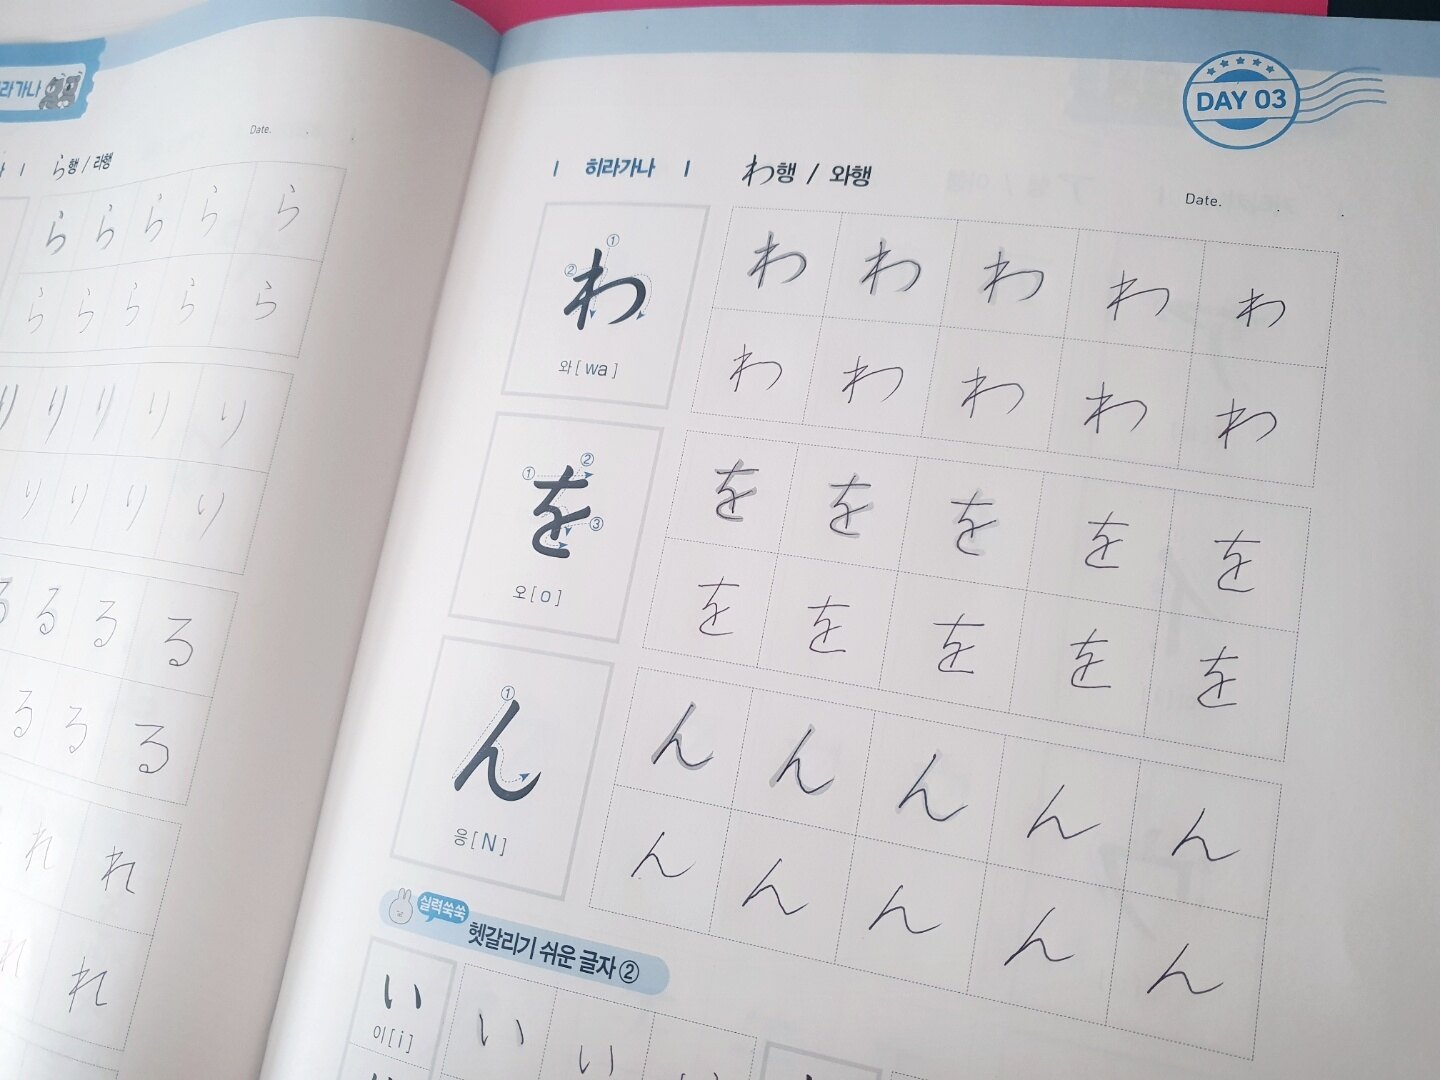 라가나
Date.
ら행 / 라행
ら ら ら ら ら
ら ら ら ら ら
り り り り り
り り り り
る る る る
る る る
れ れ
れ れ
DAY 03
히라가나
わ행 / 와행
Date.
① ②
わ
와 [ wa ]
わ わ わ わ わ
わ わ わ わ わ
① ② ③
を
오 [ o ]
を を を を を
を を を を を
①
ん
응 [ N ]
ん ん ん ん ん
ん ん ん ん ん
실력쑥쑥
헷갈리기 쉬운 글자 ②
い い い
이 [ i ]